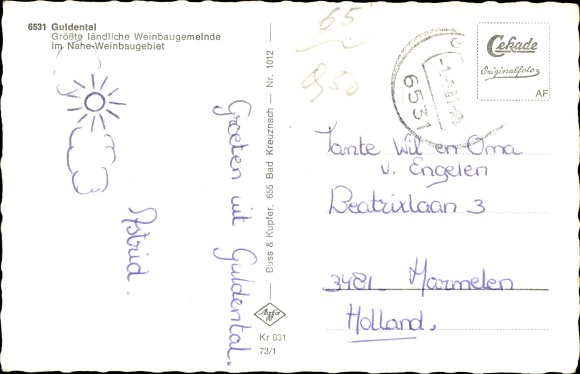 6531 Guldental
Größte ländliche Weinbaugemeinde
im Nahe-Weinbaugebiet
Groeten uit Guldental.
Astrid.
Buss & Kupfer, 655 Bad Kreuznach — Nr. 1012
Kr 031
73/1
65
950
6531
Cekade
Originalfoto
AF
Tante Wil en Oma
v. Engelen
Beatrixlaan 3
3481 Harmelen
Holland.